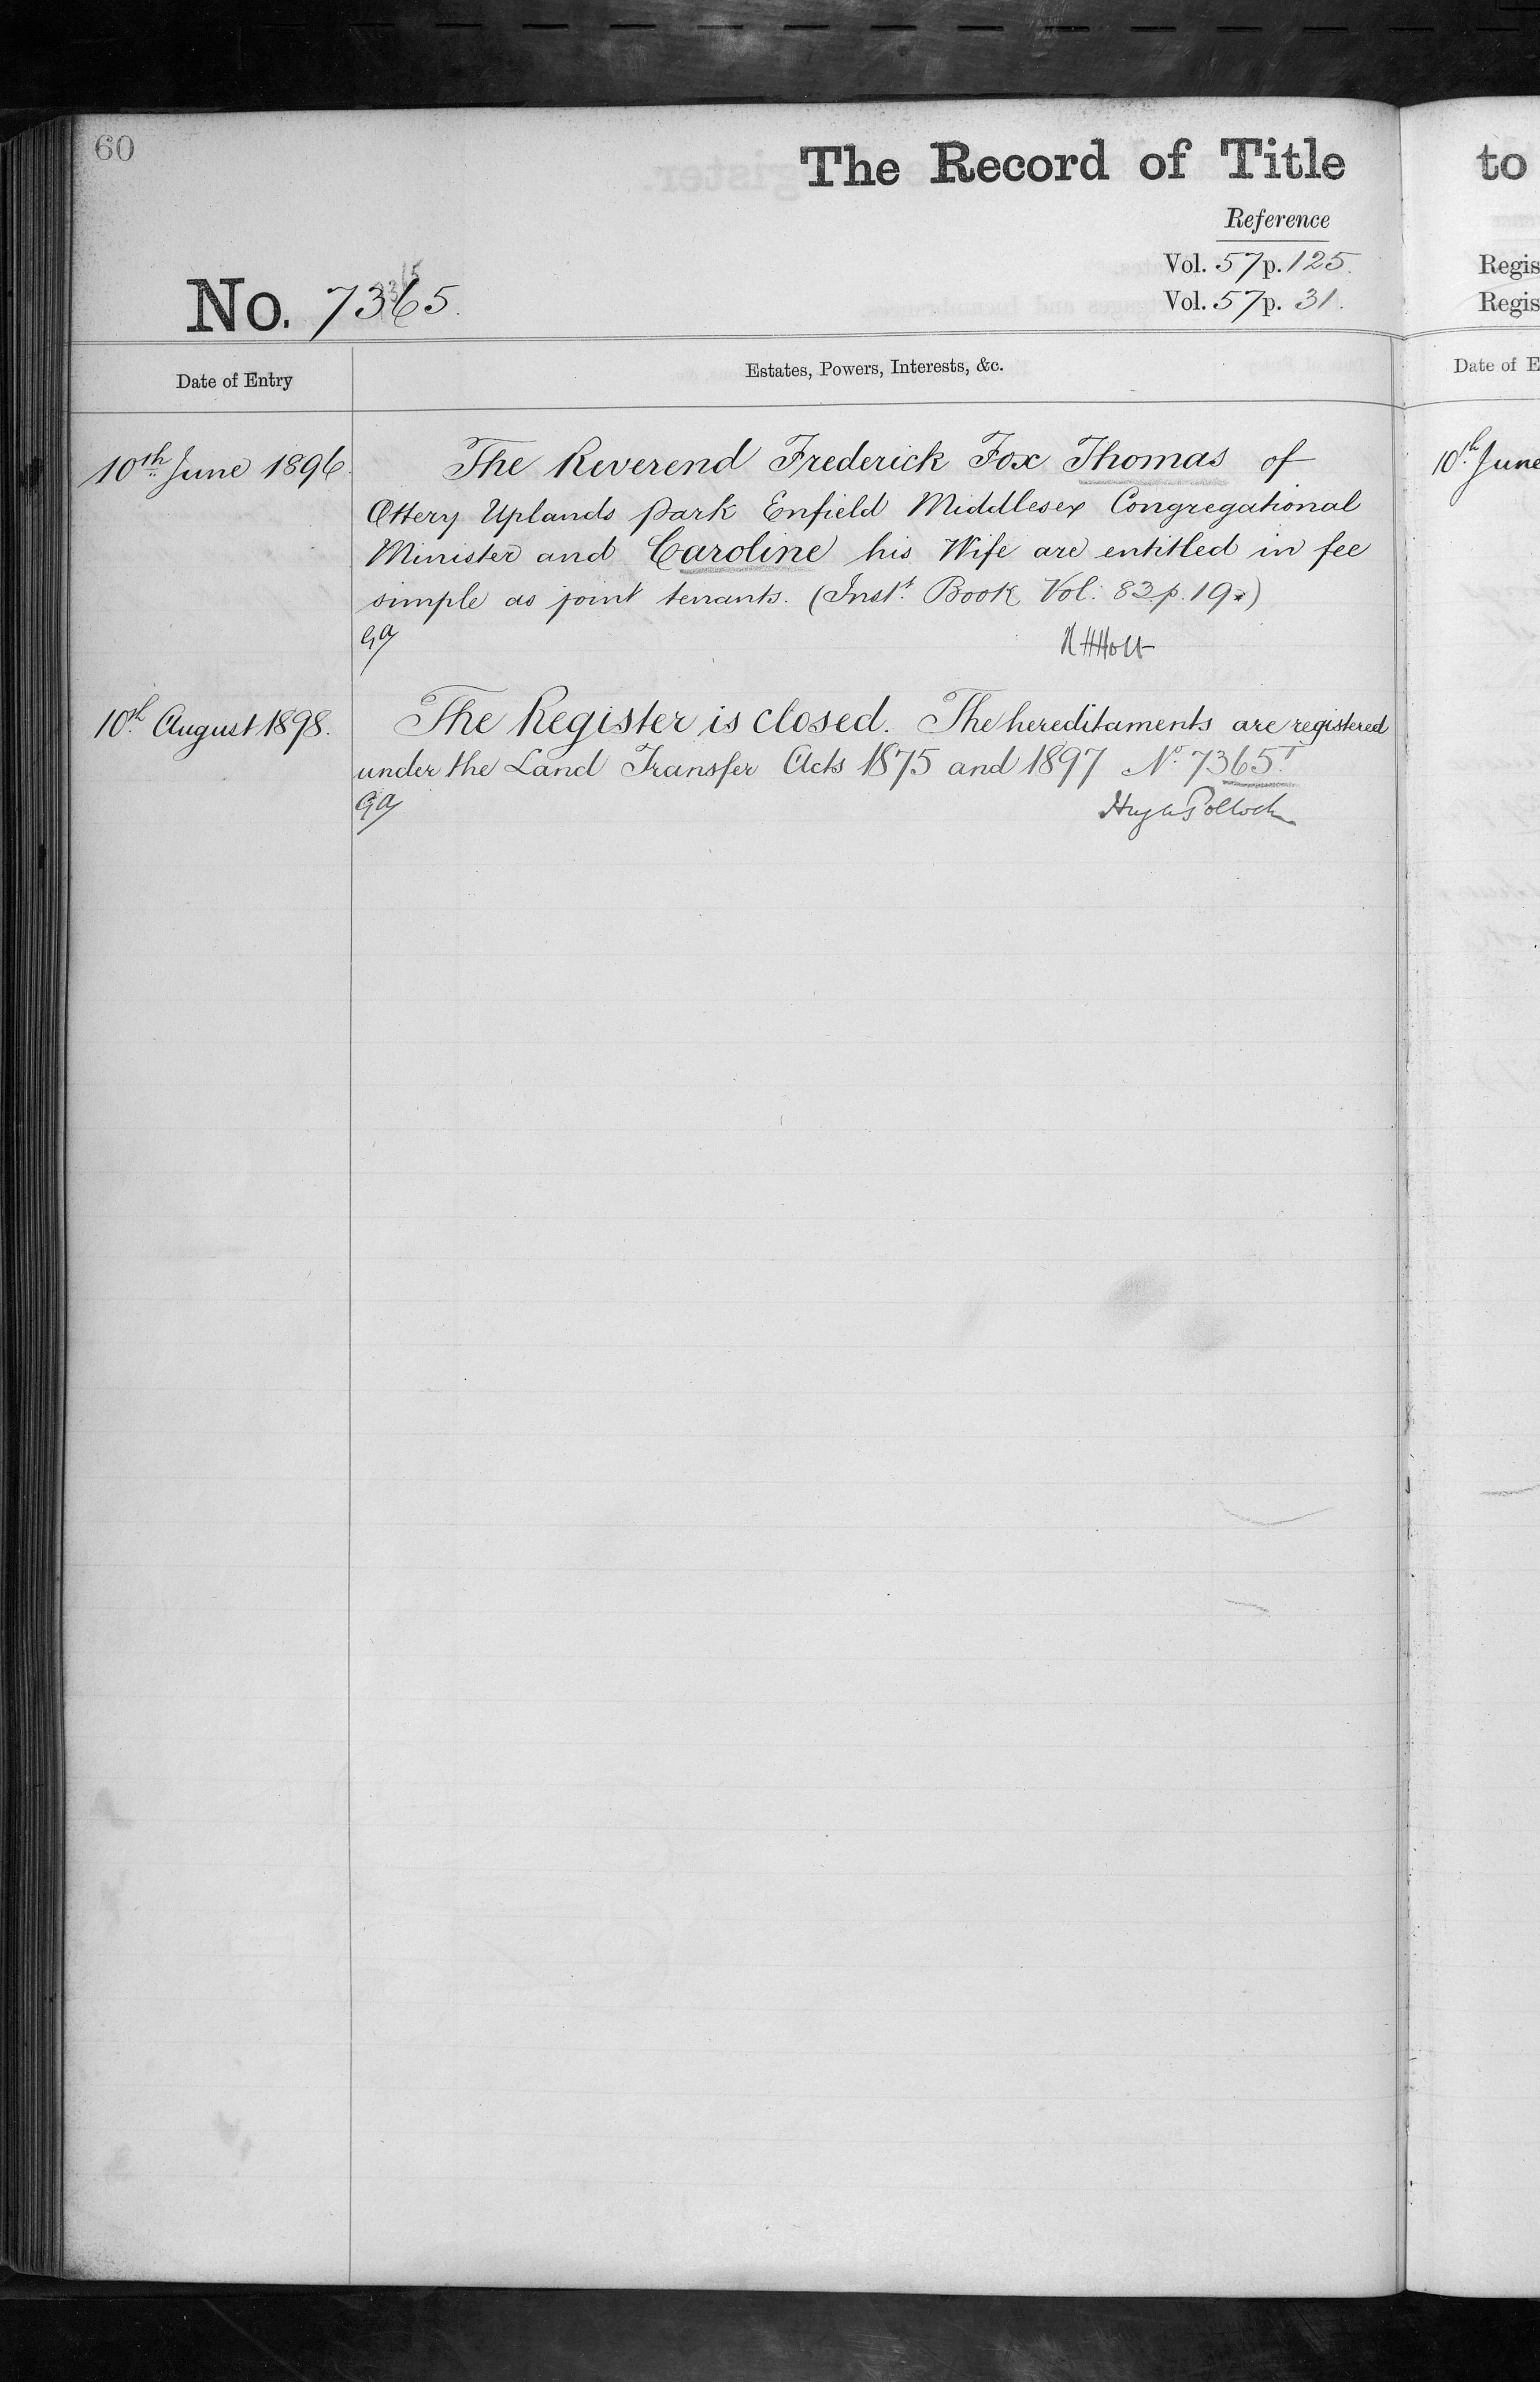 60
The Record of Title
Reference
Vol. 57 p. 125.
Vol. 57 p. 31.
No. 7365.
Date of Entry
Estates, Powers, Interests, &c.
10th June 1896.
The Reverend Frederick Fox Thomas of
Ottery Uplands Park Enfield Middlesex Congregational
Minister and Caroline his Wife are entitled in fee
simple as joint tenants. (Inst. Book Vol. 83 p. 19*)
GA
10th August 1898.
The Register is closed. The hereditaments are registered
under the Land Transfer Acts 1875 and 1897 No. 7365T
GA
Hugh Pollock
to
Regis
Regis
Date of E
10th June